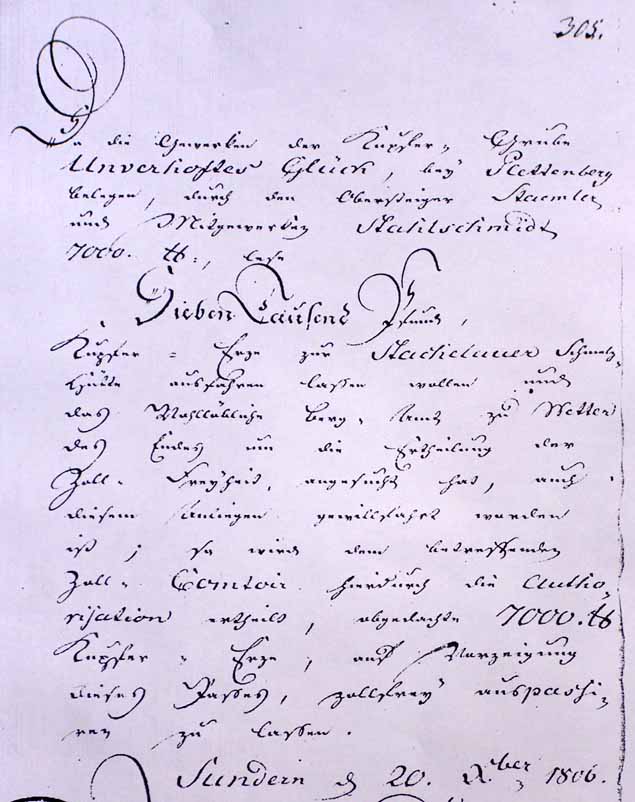 305.
Da die Gewerken der Kupfer-Grube
Unverhoftes Glück, bey Plettenberg
belegen, durch den Obersteiger Staemler
und Mitgewerken Stahlschmidt
7000. ℔., lese
Sieben Tausend Pfund,
Kupfer-Erze zur Stachelauer Schmelz-
Hütte ausfahren lassen wollen und
das Wohllöbliche Berg-Amt zu Wetter
des Endes um die Ertheilung der
Zoll-Freyheit, angesucht hat, auch
diesem Anliegen gewillfahrt worden
ist; so wird dem betreffenden
Zoll-Comtoir hierdurch die Autho-
risation ertheilt, obgedachte 7000. ℔
Kupfer-Erze, auf Vorzeigung
dieses Passes, zollfrey auspaschi-
ren zu lassen.
Sundern d 20. X.ber 1806.